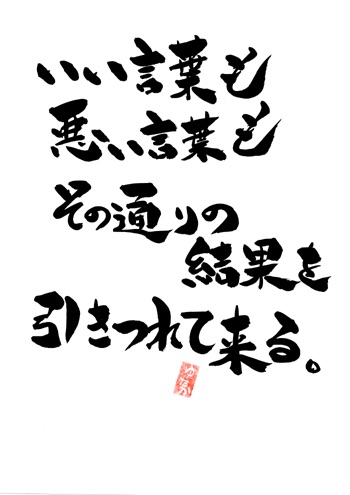 いい言葉も
悪い言葉も
その通りの
結果を
引きつれて来る。